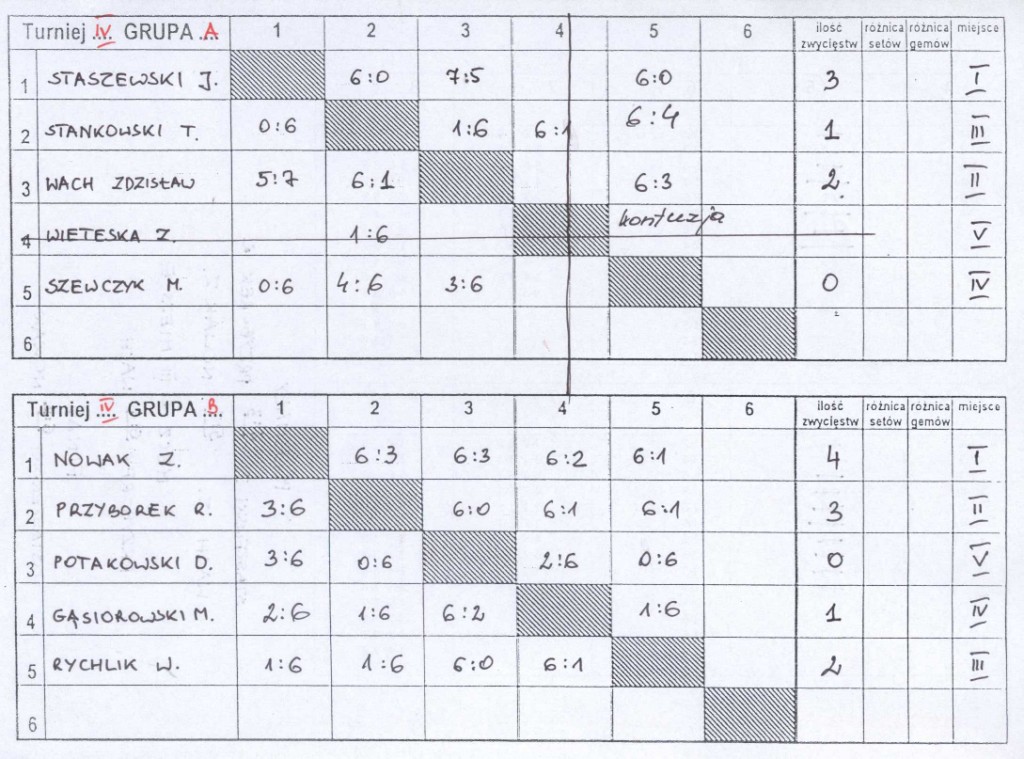 Turniej IV GRUPA A 1 2 3 4 5 6 ilość zwycięstw różnica setów różnica gemów miejsce
1 STASZEWSKI J. 6:0 7:5 6:0 3 I
2 STANKOWSKI T. 0:6 1:6 6:1 6:4 1 III
3 WACH ZDZISŁAW 5:7 6:1 6:3 2 II
4 WIETESKA Z. 1:6 kontuzja V
5 SZEWCZYK M. 0:6 4:6 3:6 0 IV
6
Turniej IV GRUPA B. 1 2 3 4 5 6 ilość zwycięstw różnica setów różnica gemów miejsce
1 NOWAK Z. 6:3 6:3 6:2 6:1 4 I
2 PRZYBOREK R. 3:6 6:0 6:1 6:1 3 II
3 POTAKOWSKI D. 3:6 0:6 2:6 0:6 0 V
4 GĄSIOROWSKI M. 2:6 1:6 6:2 1:6 1 IV
5 RYCHLIK W. 1:6 1:6 6:0 6:1 2 III
6